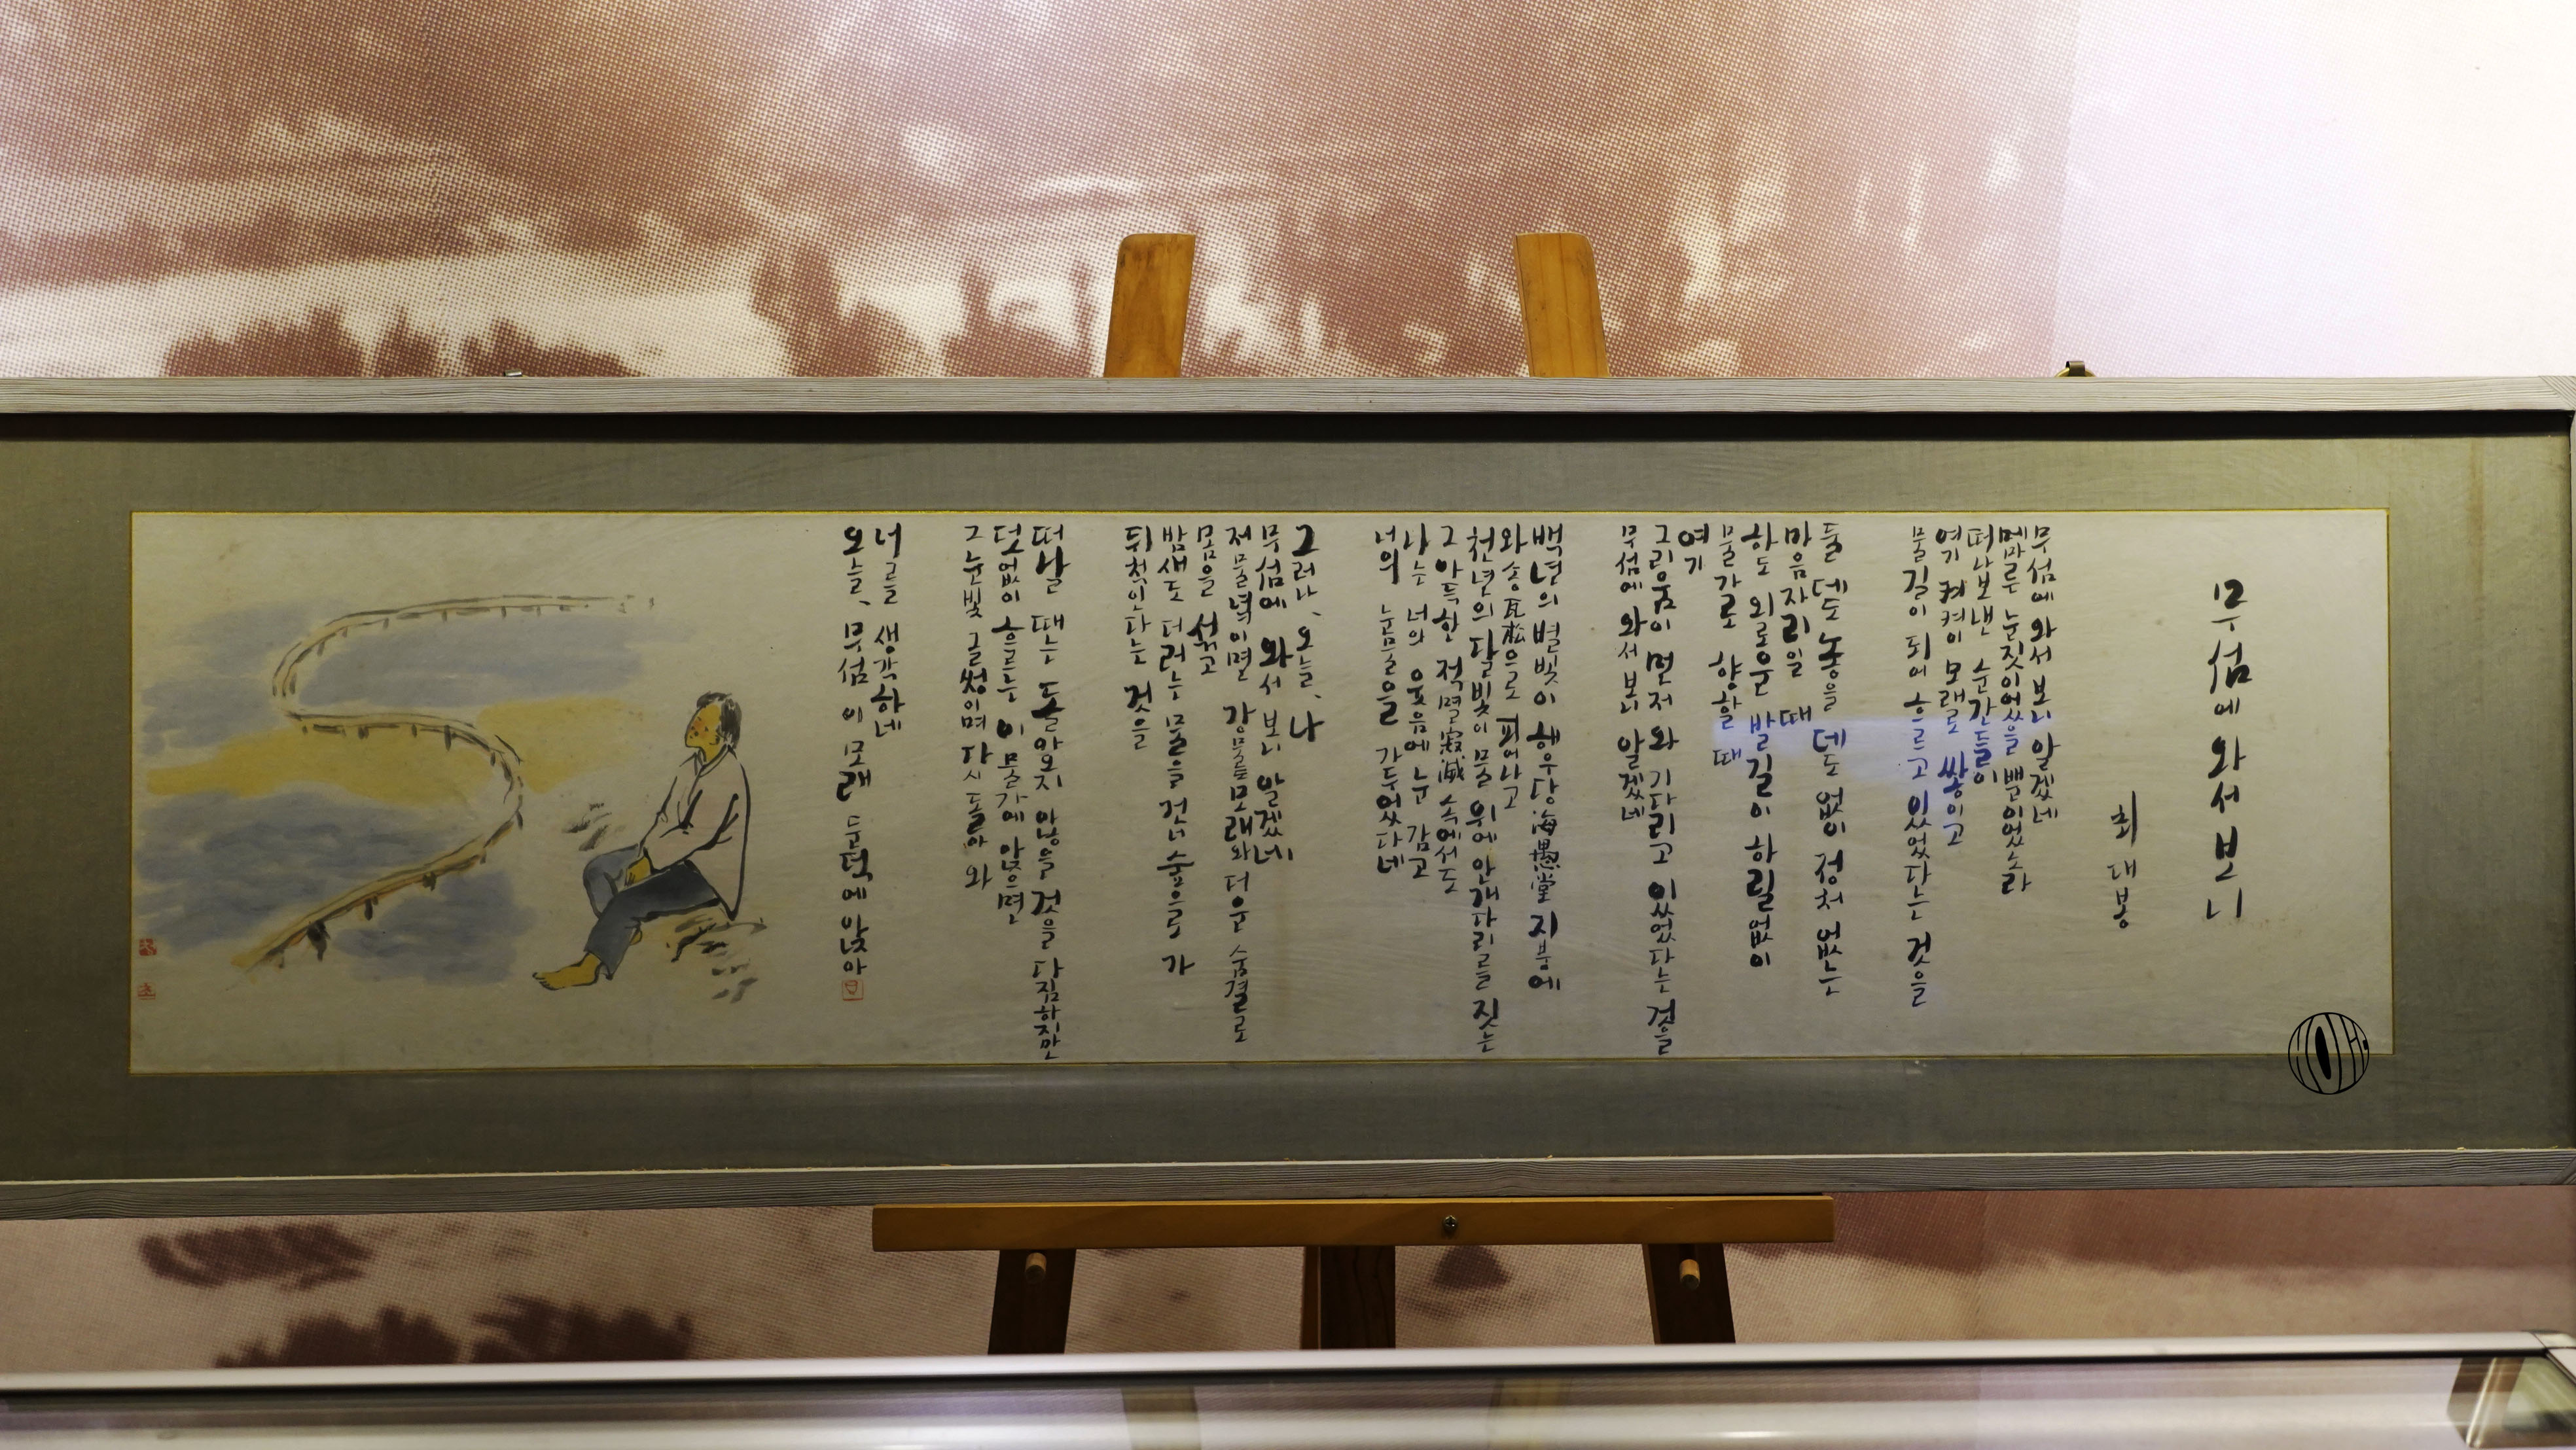 무섬에 와서 보니
최대봉
무섬에 와서 보니 알겠네
메마른 눈짓이었을 뿐이었노라
떠나보낸 순간들이
여기 켜켜이 모래로 쌓이고
물길이 되어 흐르고 있었다는 것을
둘 데도 놓을 데도 없이 정처 없는
마음자리일 때
하도 외로운 발길이 하릴없이
물가로 향할 때
여기
그리움이 먼저 와 기다리고 있었다는 것을
무섬에 와서 보니 알겠네
백년의 별빛이 해우당海愚堂 지붕에
와송瓦松으로 피어나고
천년의 달빛이 물 위에 안개다리를 짓는
그 아득한 적멸寂滅 속에서도
나는 너의 웃음에 눈 감고
너의 눈물을 가두었다네
그러나, 오늘, 나
무섬에 와서 보니 알겠네
저물녘이면 강물은 모래와 더운 숨결로
몸을 섞고
밤새도 더러는 물을 건너 숲으로 가
뒤척인다는 것을
떠날 때는 돌아오지 않을 것을 다짐하지만
덧없이 흐르는 이 물가에 앉으면
그 눈빛 글썽이며 다시 돌아와
너를 생각하네
오늘, 무섬 이 모래 둔덕에 앉아